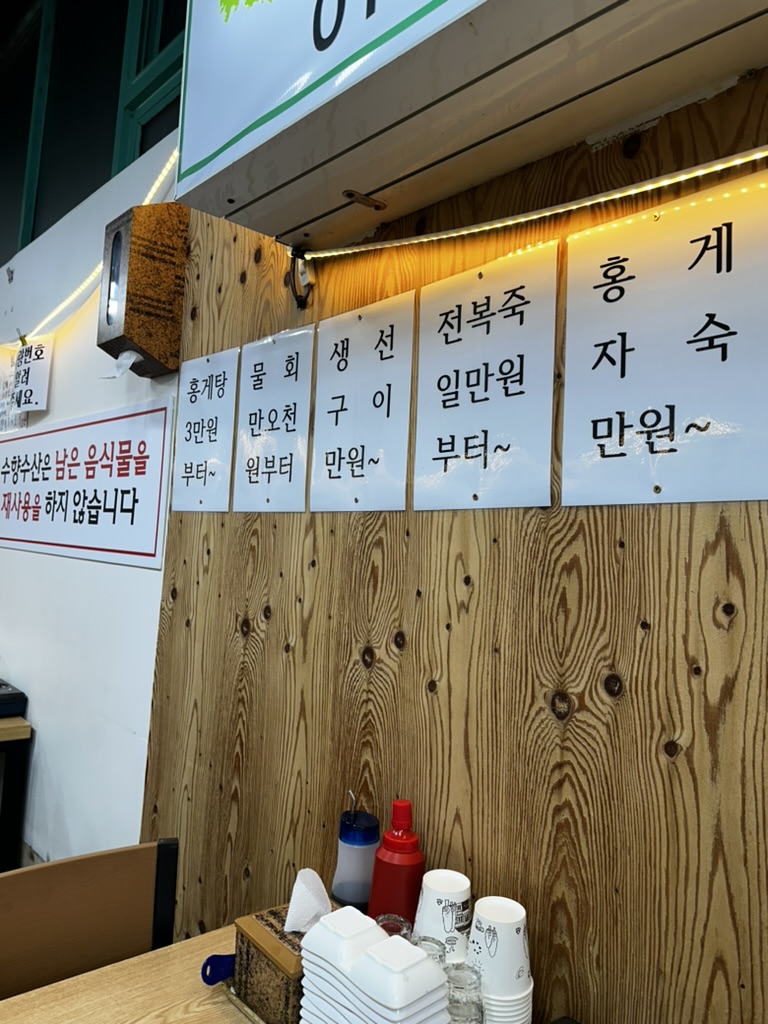 수향수산은 남은 음식물을
재사용을 하지 않습니다
홍게탕
3만원
부터~
물 회
만오천
원부터
생 선
구 이
만원~
전복죽
일만원
부터~
홍 게
자 숙
만원~